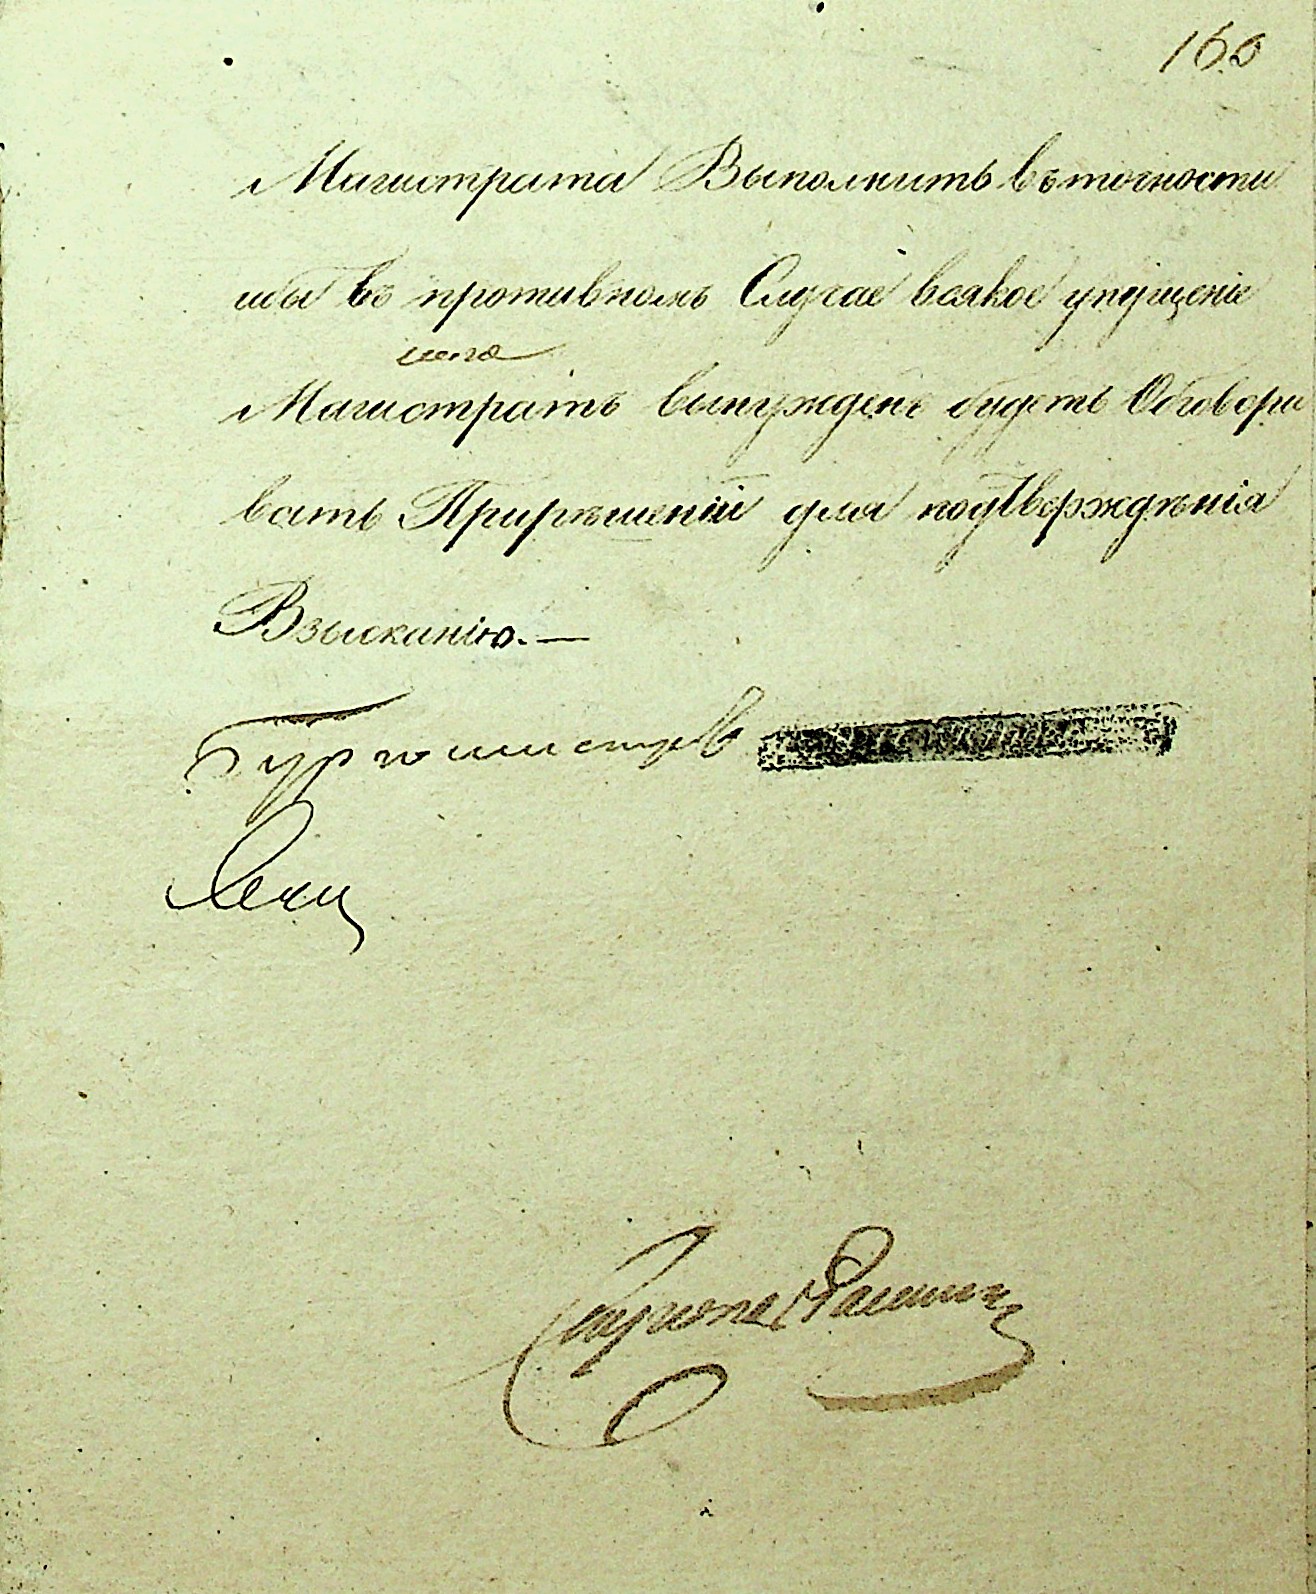 160
Магистрата Выполнить въ точности
ибо въ противномъ Случае всякое упущеніе
сего
Магистратъ вынужденъ будетъ Обговори
вать Прирѣшеніи для подтвержденія
Взысканію. —
Бургомистръ